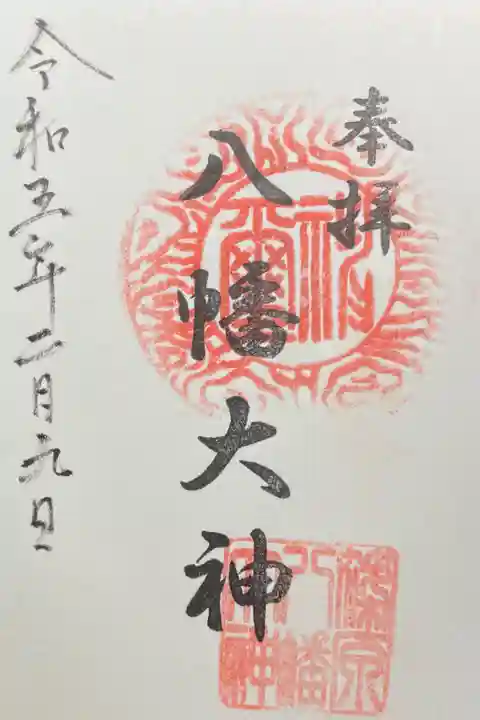 奉拝
八幡大神
令和五年二月九日